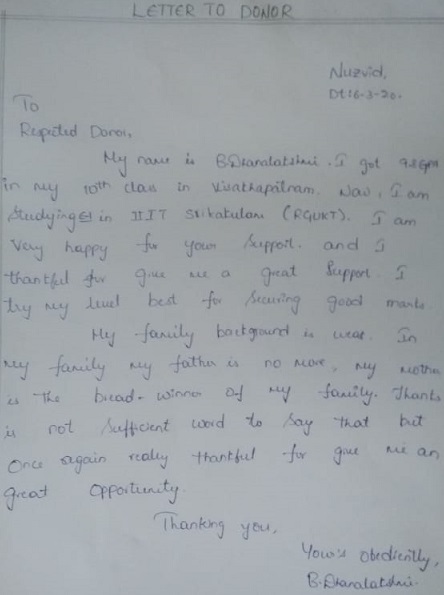 LETTER TO DONOR
Nuzvid,
Dt 16-3-20.
To
Respected Donor,
My name is B.Dhanalakshmi. I got 9.8 Gpm
in my 10th class in Visakhapatnam. Now, I am
studying in IIIT Srikakulam (RGUKT). I am
Very happy for your Support. and I
thankful for give me a great Support. I
try my level best for securing good marks
My family background is weak. In
my family my father is no more, my mother
is the bread-winner of my family. Thanks
is not sufficient word to say that but
Once again really thankful for give me an
great Opportunity.
Thanking you,
Your's Obediently,
B.Dhanalakshmi.